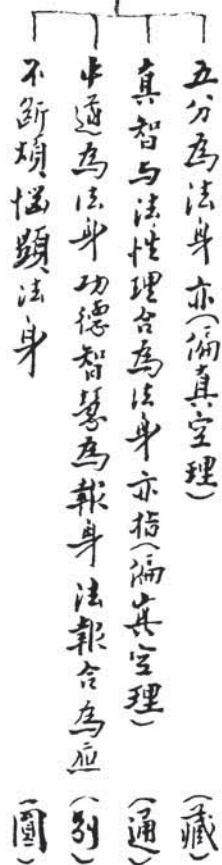 五分為法身亦(偏真空理) (藏)
真智与法性理合為法身亦指(偏真空理) (通)
中道為法身功德智慧為報身法報合為应 (別)
不斷煩惱顯法身 (圓)